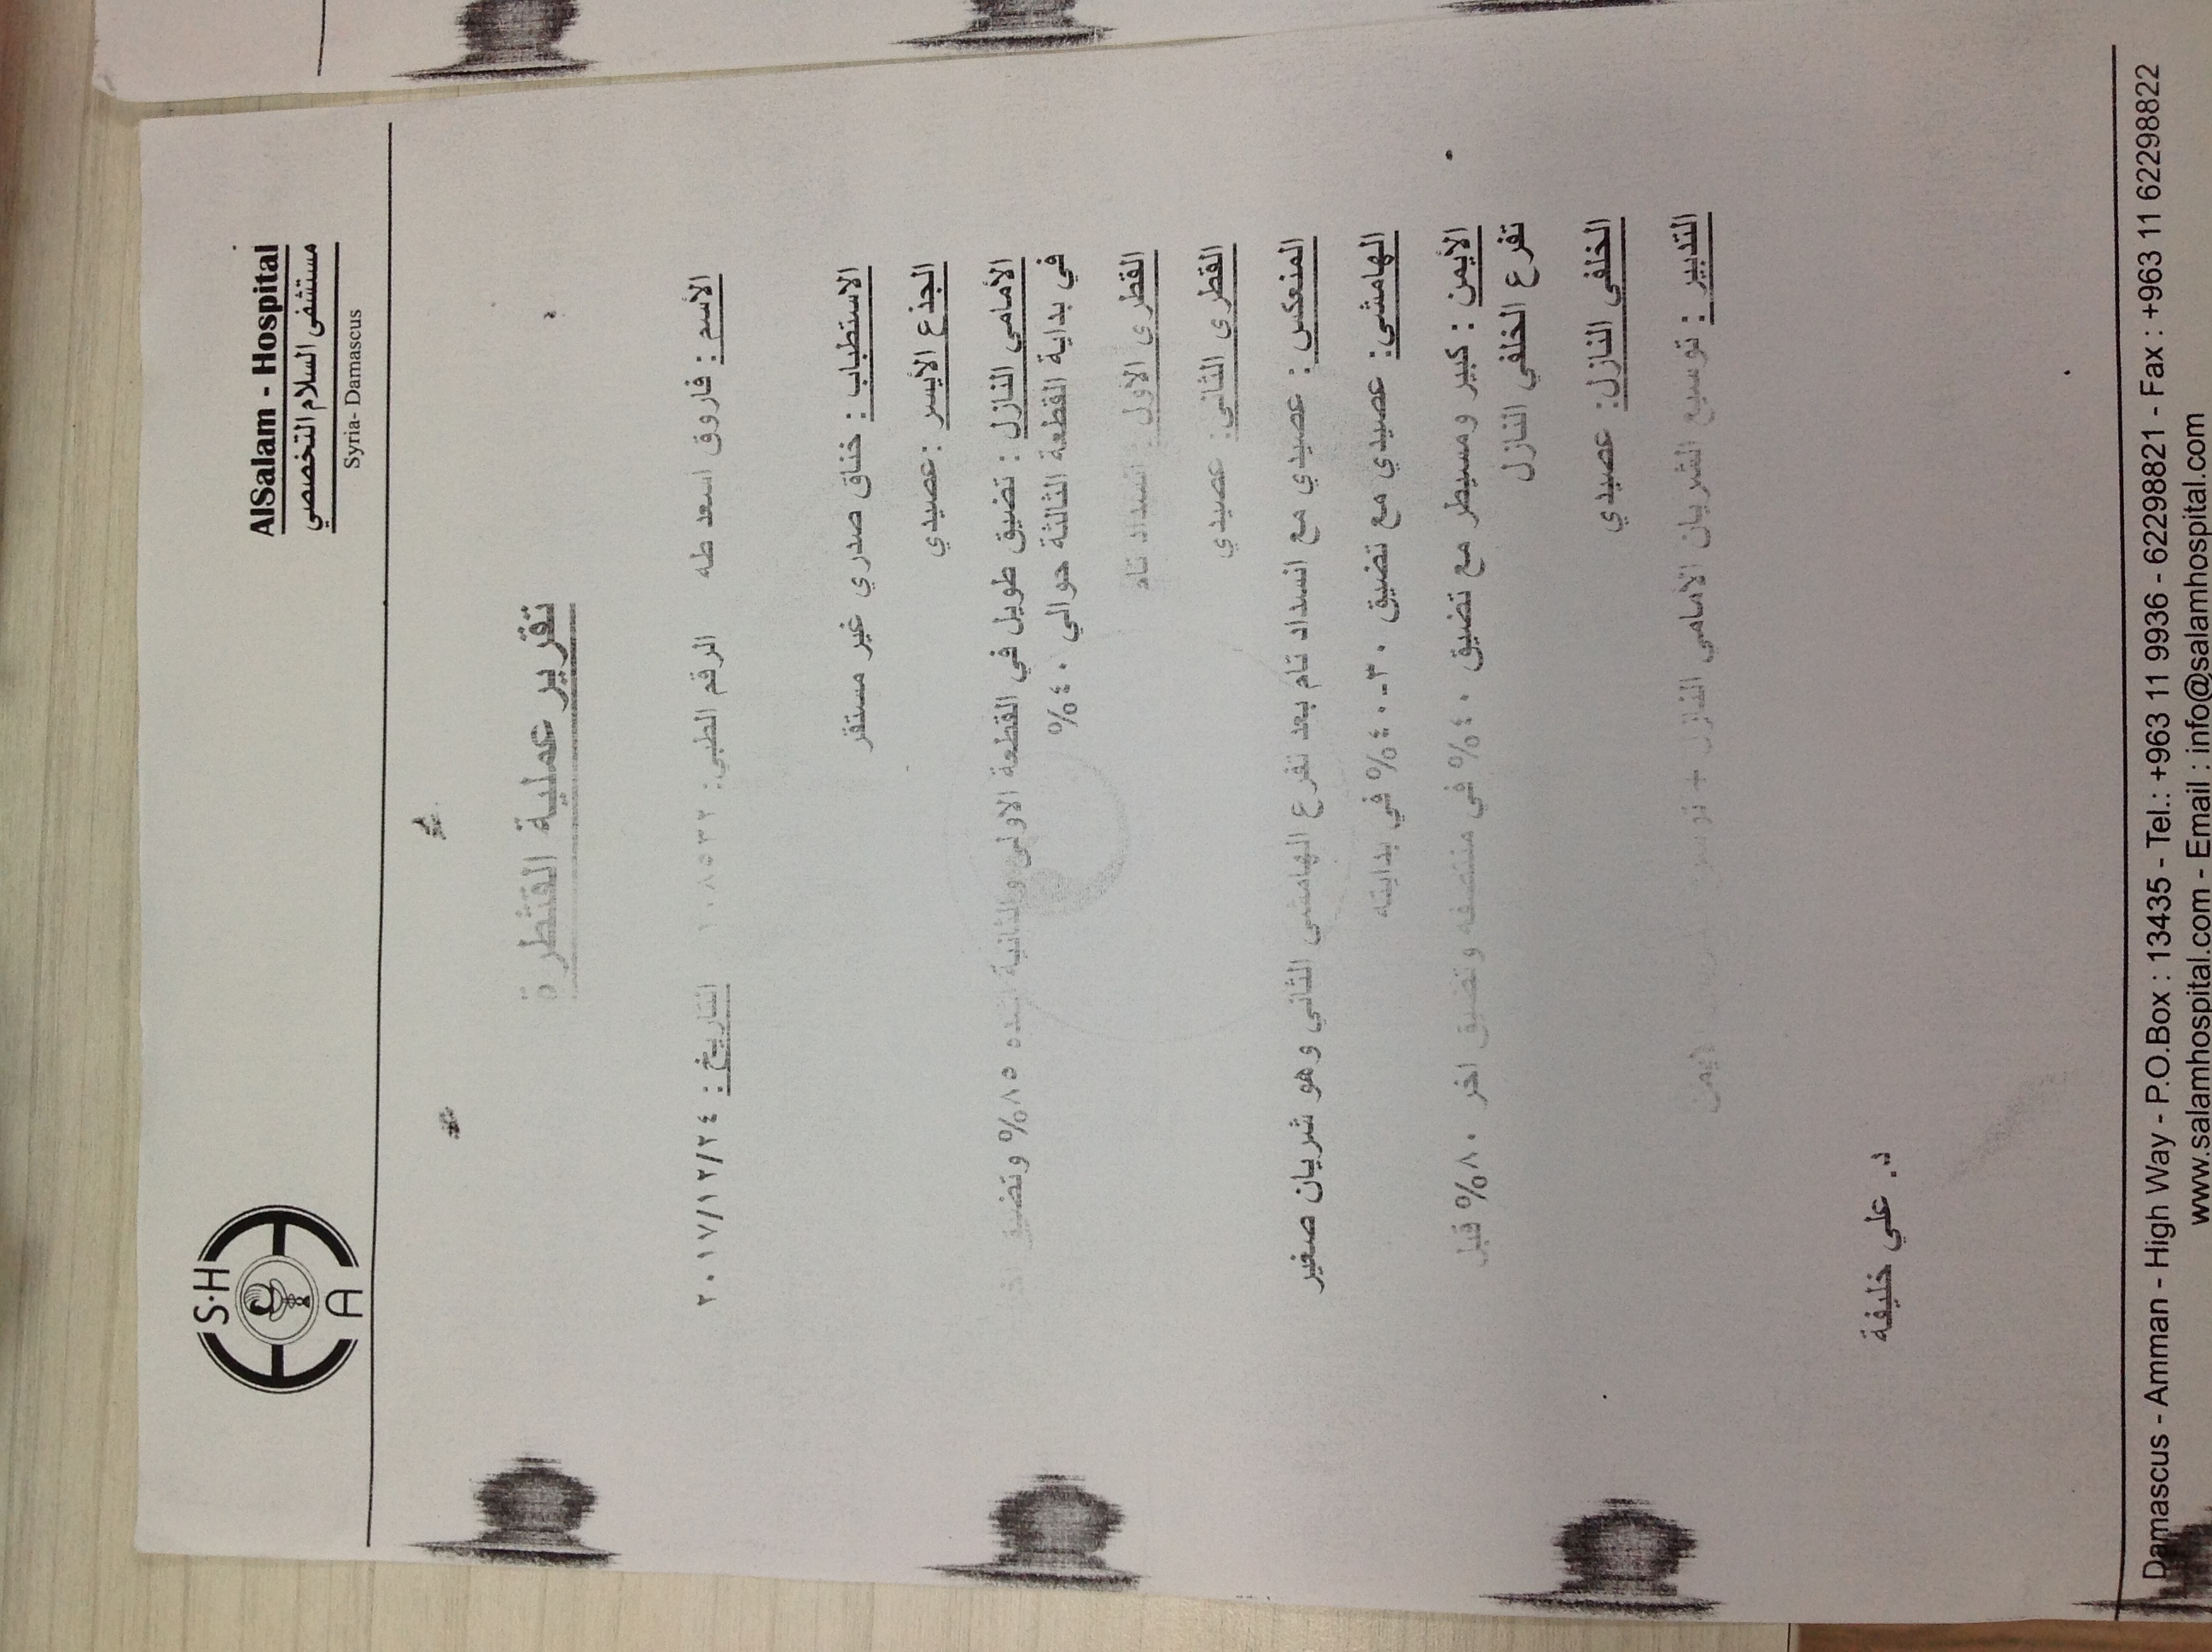 S.H
A
AlSalam - Hospital
مستشفى السلام التخصصي
Syria- Damascus
تقرير عملية القثطرة
الأسم : فاروق اسعد طه الرقم الطبي: ١٠٨٥٣٢ التاريخ : ٢٠١٧/١٢/٢٤
الاستطباب : خناق صدري غير مستقر
الجذع الأيسر :عصيدي
الأمامي النازل : تضيق طويل في القطعة الاولى والثانية اشده ٨٥% وتضيق اخر
في بداية القطعة الثالثة حوالي ٤٠%
القطري الاول : انسداد تام
القطري الثاني: عصيدي
المنعكس : عصيدي مع انسداد تام بعد تفرع الهامشي الثاني وهو شريان صغير
الهامشي: عصيدي مع تضيق ٣٠-٤٠% في بدايته
الأيمن : كبير ومسيطر مع تضيق ٤٠% في منتصفه وتضيق اخر ٨٠% قبل
تفرع الخلفي النازل
الخلفي النازل: عصيدي
التدبير : توسيع الشريان الامامي النازل + توسيع الايمن
د. علي خليفة
Damascus - Amman - High Way - P.O.Box : 13435 - Tel.: +963 11 9936 - 62298821 - Fax : +963 11 62298822
www.salamhospital.com - Email : info@salamhospital.com